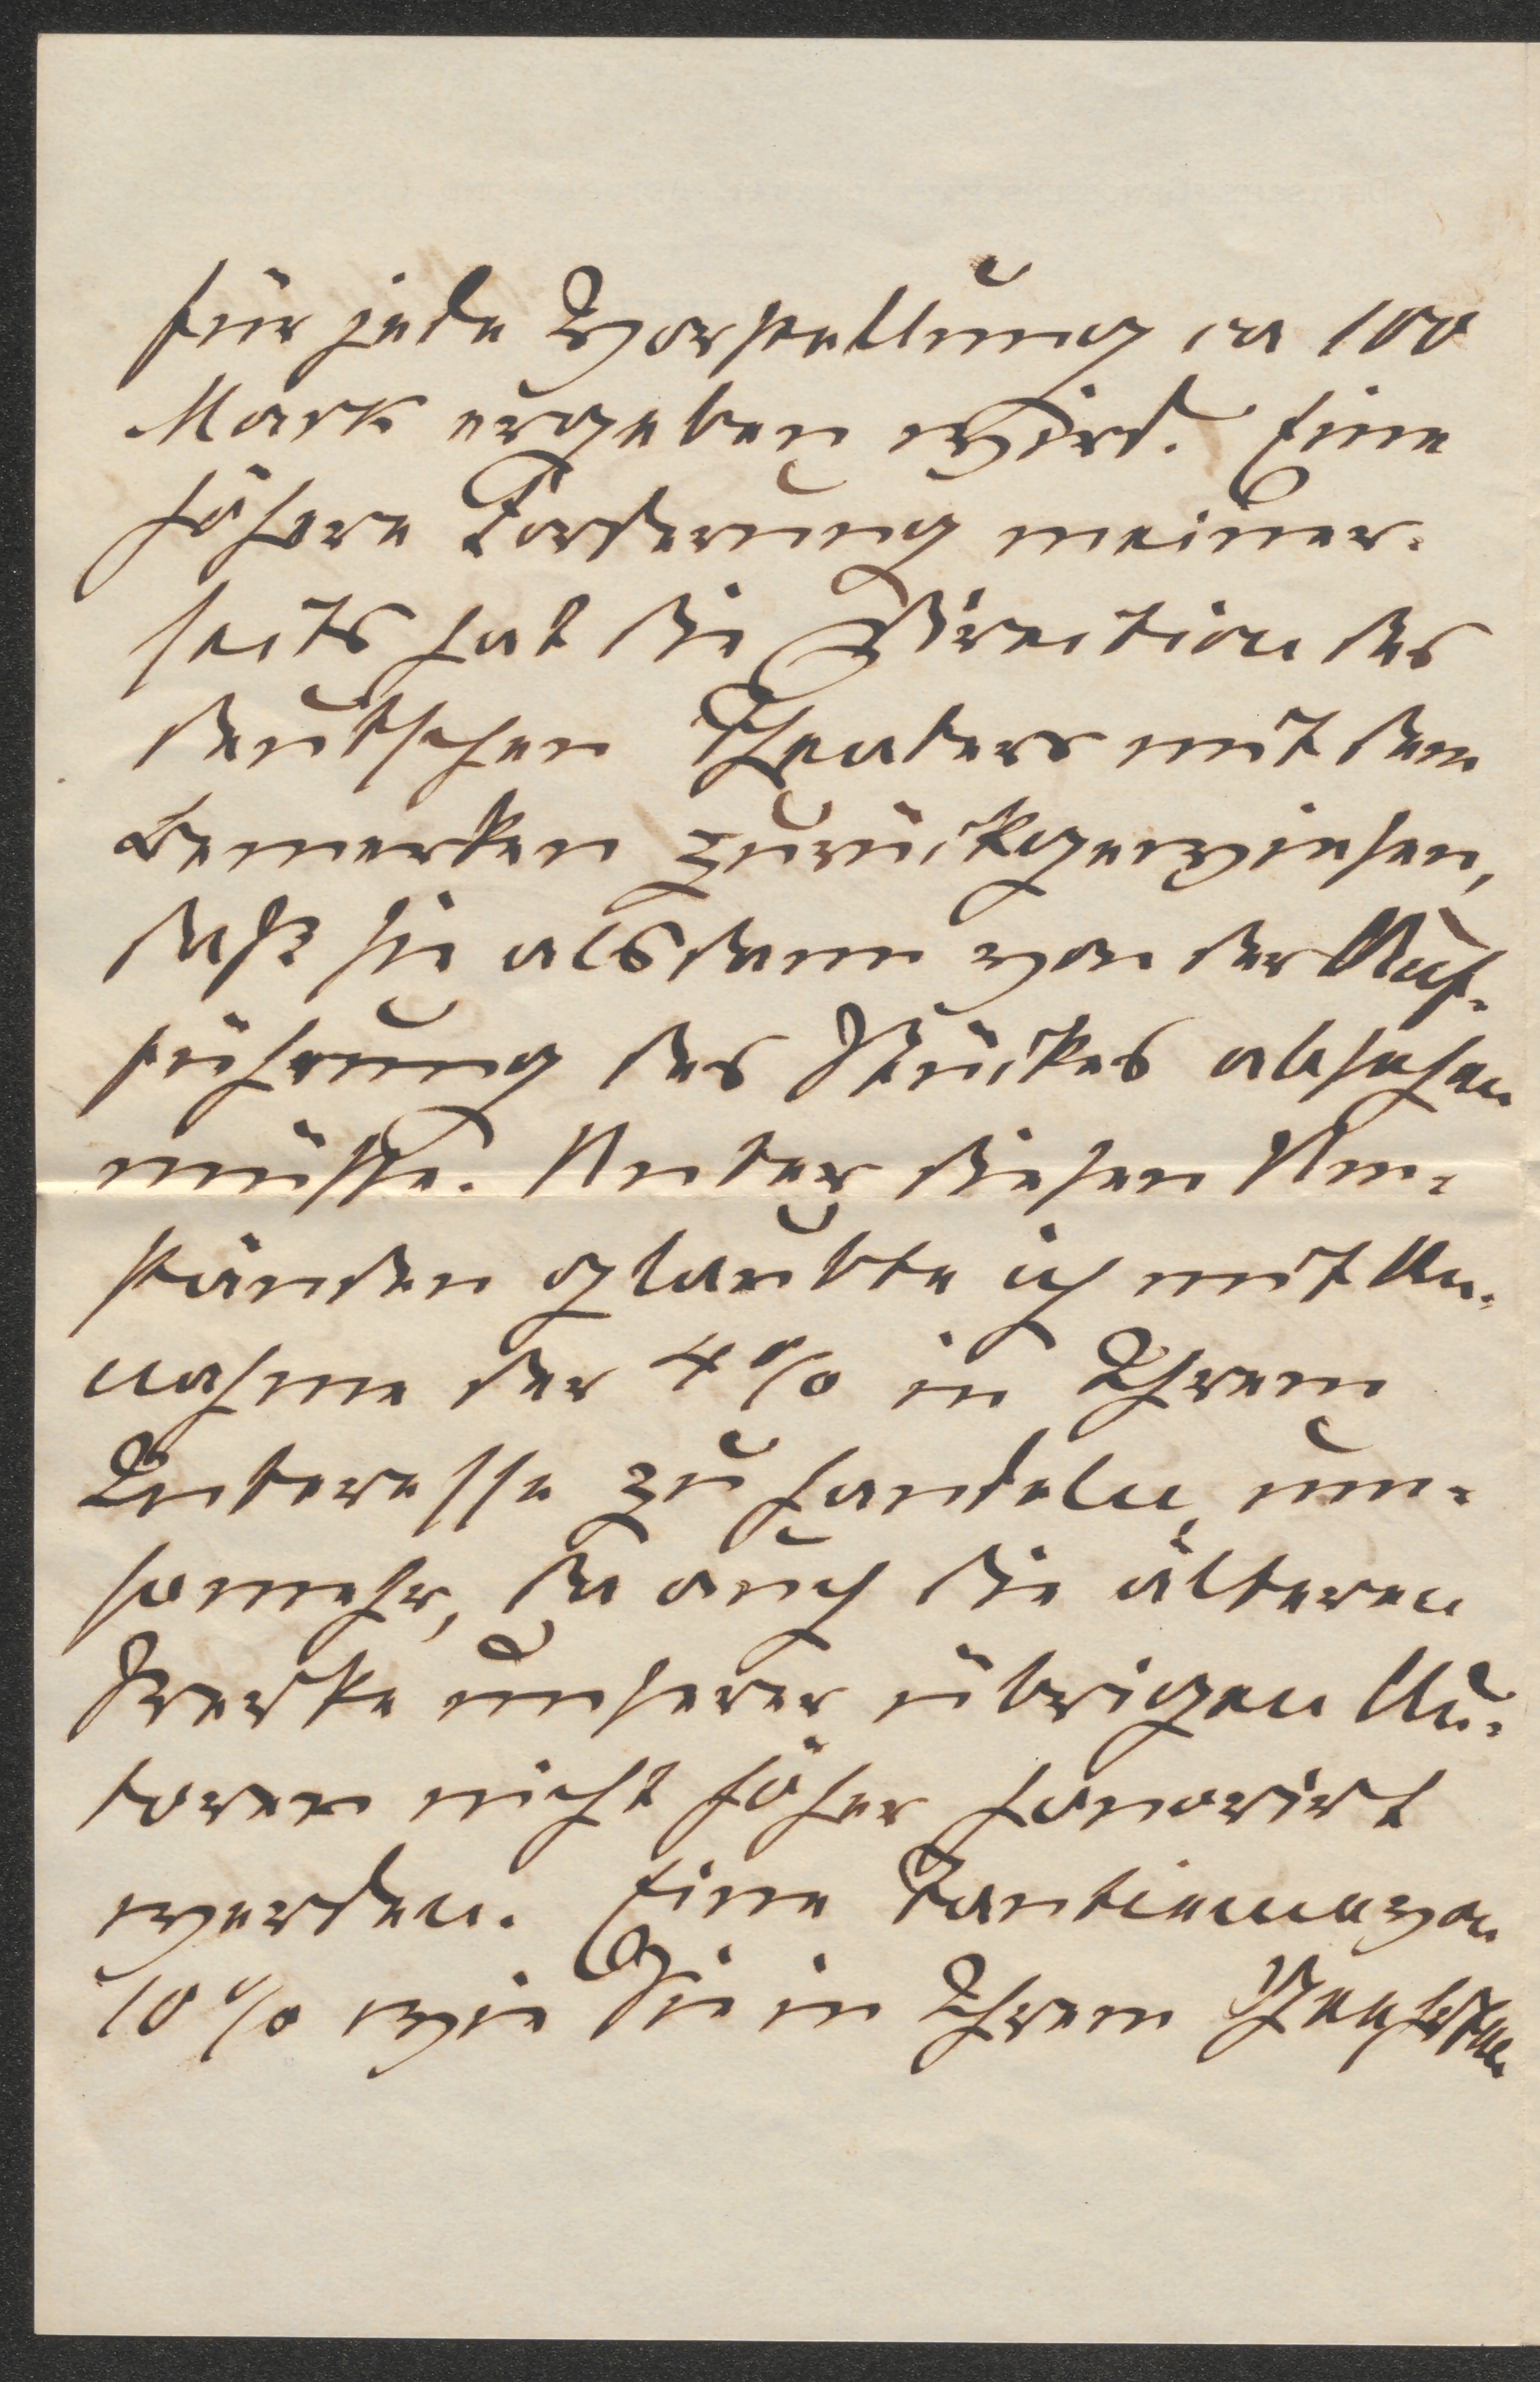 für jede Vorstellung ca 100
Mark ergeben wird. Eine
höhere Forderung meiner-
seits hat die Direction des
deutschen Theaters mit dem
Bemerken zurückgewiesen,
daß sie alsdann von der Auf-
führung des Stückes absehen
müsste. Unter diesen Um-
ständen glaubte ich mit An-
nahme der 4% in Ihrem
Interesse zu handeln, um-
somehr, da auch die älteren
Werke unserer übrigen Au-
toren nicht höher honorirt
werden. Eine Tantieme von
10% wie Sie in Ihrem